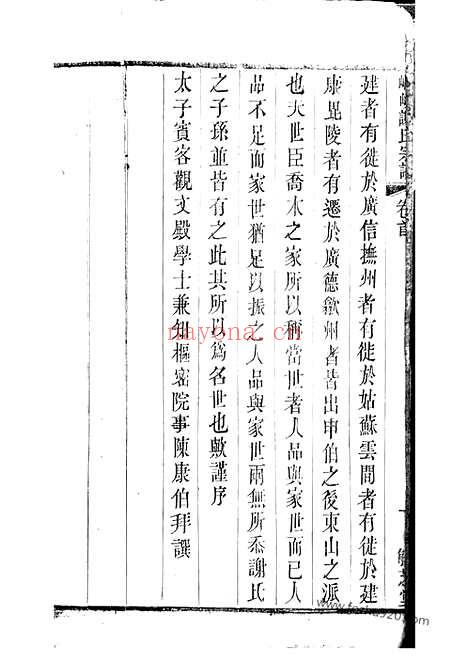 謝氏宗譜 卷首
建者有徙於廣信撫州者有徙於姑蘇雲間者有徙於建
康毘陵者有遷於廣德歙州者皆出申伯之後東山之派
也夫世臣喬木之家所以稱當世者人品與家世而已人
品不足而家世猶足以振之人品與家世兩無所忝謝氏
之子孫並皆有之此其所以爲名世也歟謹序
太子賓客觀文殿學士兼知樞密院事陳康伯拜譔
nayona.cn